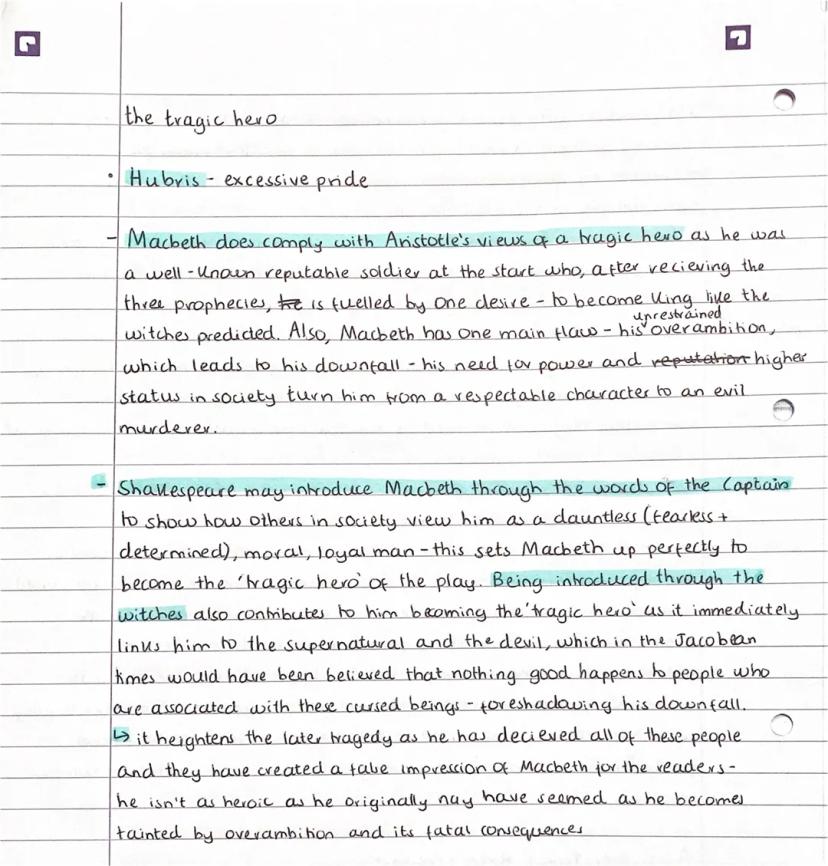 the tragic hero
• Hubris - excessive pride
- Macbeth does comply with Aristotle's views of a tragic hero as he was
a well-known reputable soldier at the start who, after recieving the
three prophecies, he is fuelled by one desire - to become King like the
witches predicted. Also, Macbeth has one main flaw - his unrestrained overambition,
which leads to his downfall - his need for power and reputation higher
status in society turn him from a respectable character to an evil
murderer.
- Shakespeare may introduce Macbeth through the words of the Captain
to show how others in society view him as a dauntless (fearless +
determined), moral, loyal man - this sets Macbeth up perfectly to
become the 'tragic hero' of the play. Being introduced through the
witches also contributes to him becoming the 'tragic hero' as it immediately
links him to the supernatural and the devil, which in the Jacobean
times would have been believed that nothing good happens to people who
are associated with these cursed beings - foreshadowing his downfall.
↳ it heightens the later tragedy as he has decieved all of these people
and they have created a false impression of Macbeth for the readers -
he isn't as heroic as he originally may have seemed as he becomes
tainted by overambition and its fatal consequences